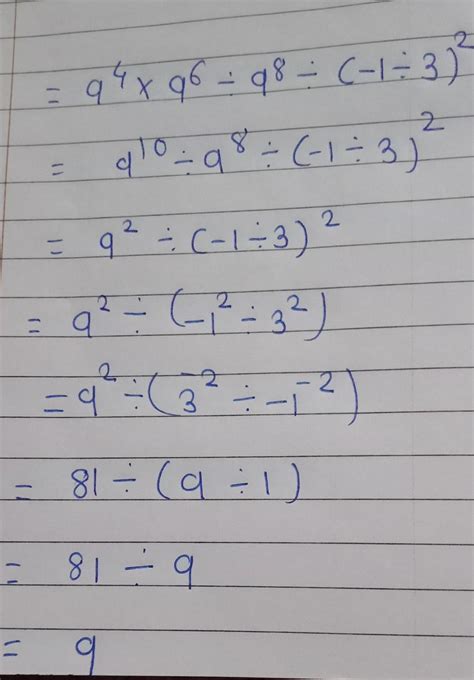 = 9⁴ × 9⁶ ÷ 9⁸ ÷ (-1 ÷ 3)²
= 9¹⁰ ÷ 9⁸ ÷ (-1 ÷ 3)²
= 9² ÷ (-1 ÷ 3)²
= 9² ÷ (-1² ÷ 3²)
= 9² ÷ (3⁻² ÷ -1⁻²)
= 81 ÷ (9 ÷ 1)
= 81 ÷ 9
= 9